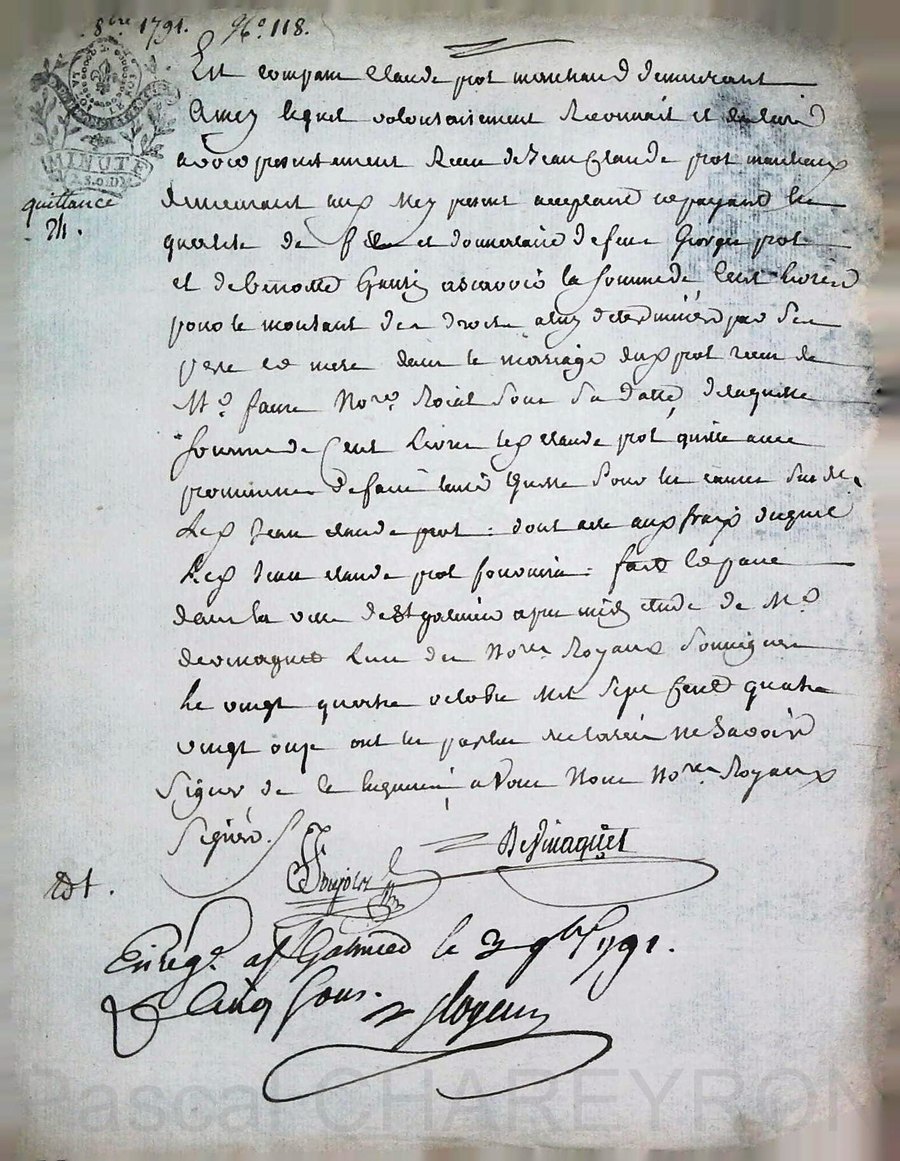 8bre 1791. No. 118.
LA LOI LE ROI
MINUTE
quittance
Est comparu Claude prot marchand demeurant
lequel volontairement Reconnait et declaré
avoir presentement Receu de Jean Claude prot marchand
demeurant aux present acceptant et payant en
qualité de fils et donnataire de feu Georges prot
et de benoitte ascavoir la somme de Cent livres
pour le montant des droits a luy determinés par ses
pere et mere dans le mariage dud prot receu de
Me. faure Nore. Roial sous sa datte, de laquelle
somme de Cent livres led Claude prot, quitte avec
promesse de faire tenir quitte Pour les causes Sus de.
Led Jean Claude prot : dont acte aux fraix duquel
Led Jean Claude prot fournira : fait et passé
dans la ville de St galmier apres midy etude de Me.
devinaquet L'un des Nores. Royaux Soussignés
Le vingt quatre octobre Mil Sept Cent quatre
vingt onze ont les parties declarées ne Savoir
Signer de ce Nous Nores. Royaux
Signés.
DeVinaquet
Enregé. a St Galmier le 3 9bre 1791.
R Cinq Sous.
Pascal CHAREYRON